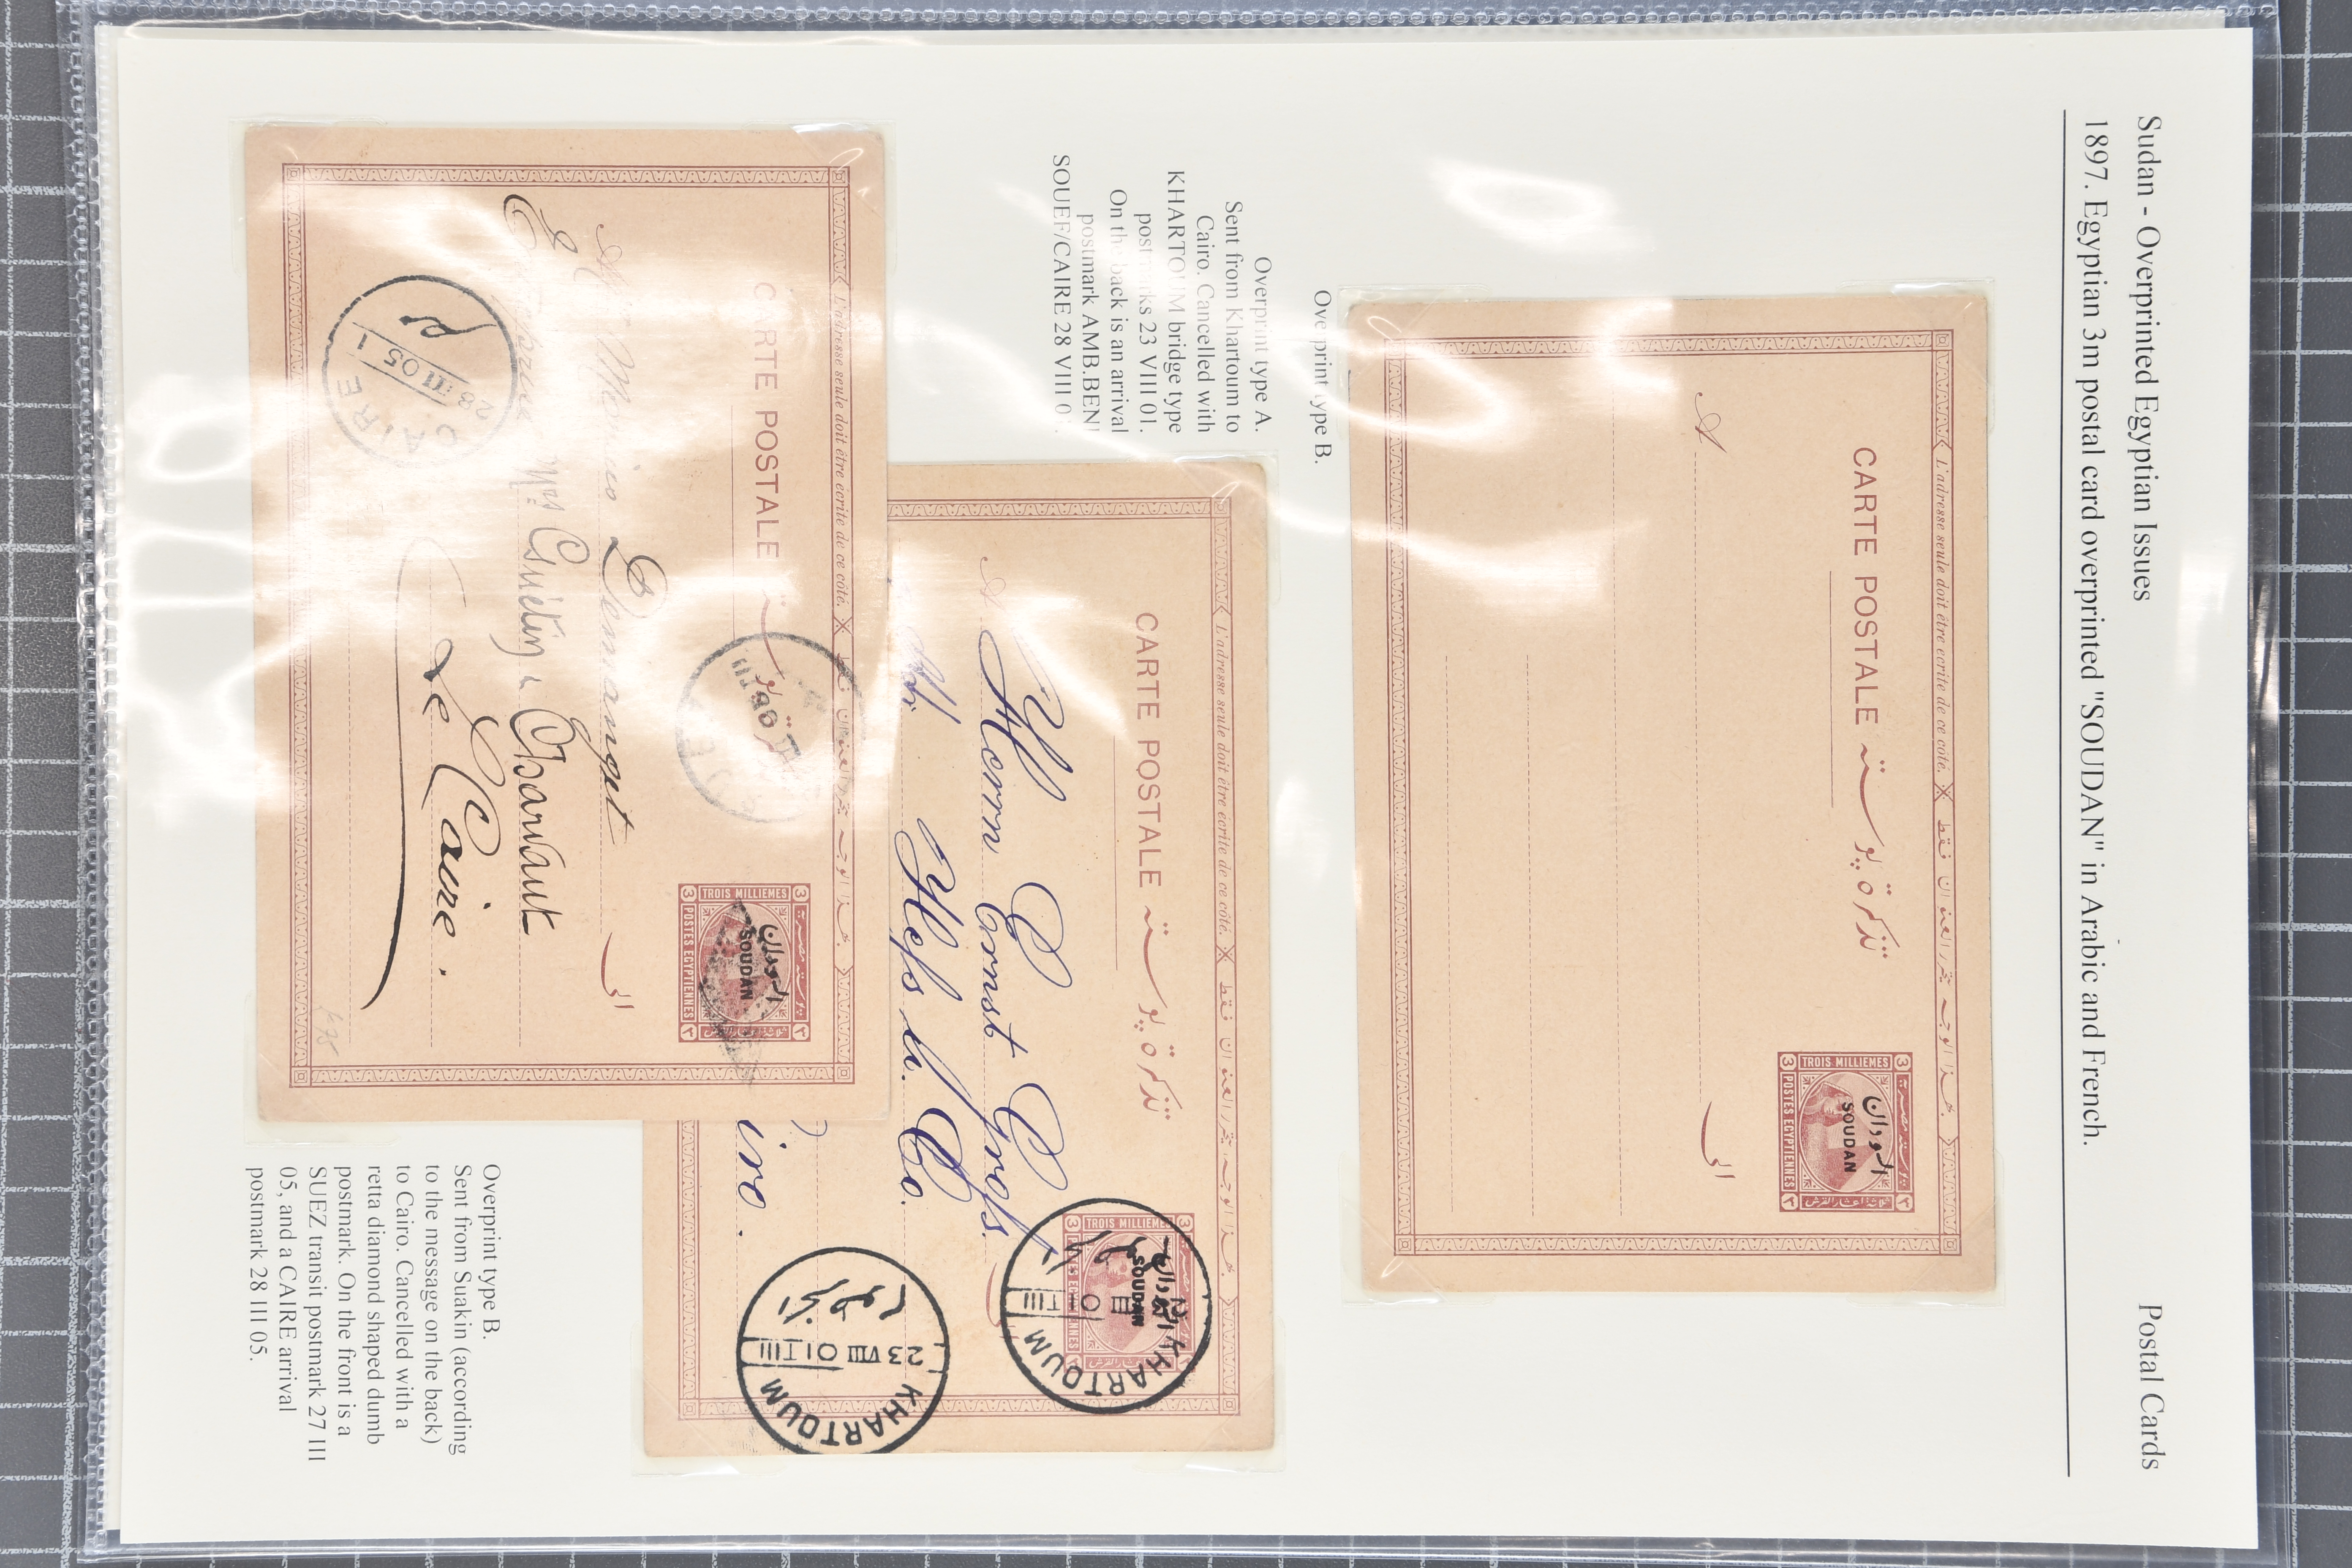 Sudan - Overprinted Egyptian Issues
Postal Cards
1897. Egyptian 3m postal card overprinted "SOUDAN" in Arabic and French.
L'adresse seule doit être écrite de ce côté.
CARTE POSTALE تذكرة بوستة
TROIS MILLIEMES
POSTES EGYPTIENNES
3 3
السودان
SOUDAN
A
الى
Overprint type B.
Overprint type A.
Sent from Khartoum to
Cairo. Cancelled with
KHARTOUM bridge type
postmarks 23 VIII 01.
On the back is an arrival
postmark AMB.BENI
SOUEF/CAIRE 28 VIII 0
L'adresse seule doit être écrite de ce côté.
CARTE POSTALE تذكرة بوستة
TROIS MILLIEMES
SOUDAN
KHARTOUM
A
Herrn Ernst Gross.
Hess u. Co.
iro.
KHARTOUM
23 VIII 01 T III
L'adresse seule doit être écrite de ce côté.
CARTE POSTALE
TROIS MILLIEMES
POSTES EGYPTIENNES
3 3
السودان
SOUDAN
Demanget
الى
Mrs Guieting & Charvaut
Le Caire.
CAIRE
28 III 05 1
Overprint type B.
Sent from Suakin (according
to the message on the back)
to Cairo. Cancelled with a
retta diamond shaped dumb
postmark. On the front is a
SUEZ transit postmark 27 III
05, and a CAIRE arrival
postmark 28 III 05.